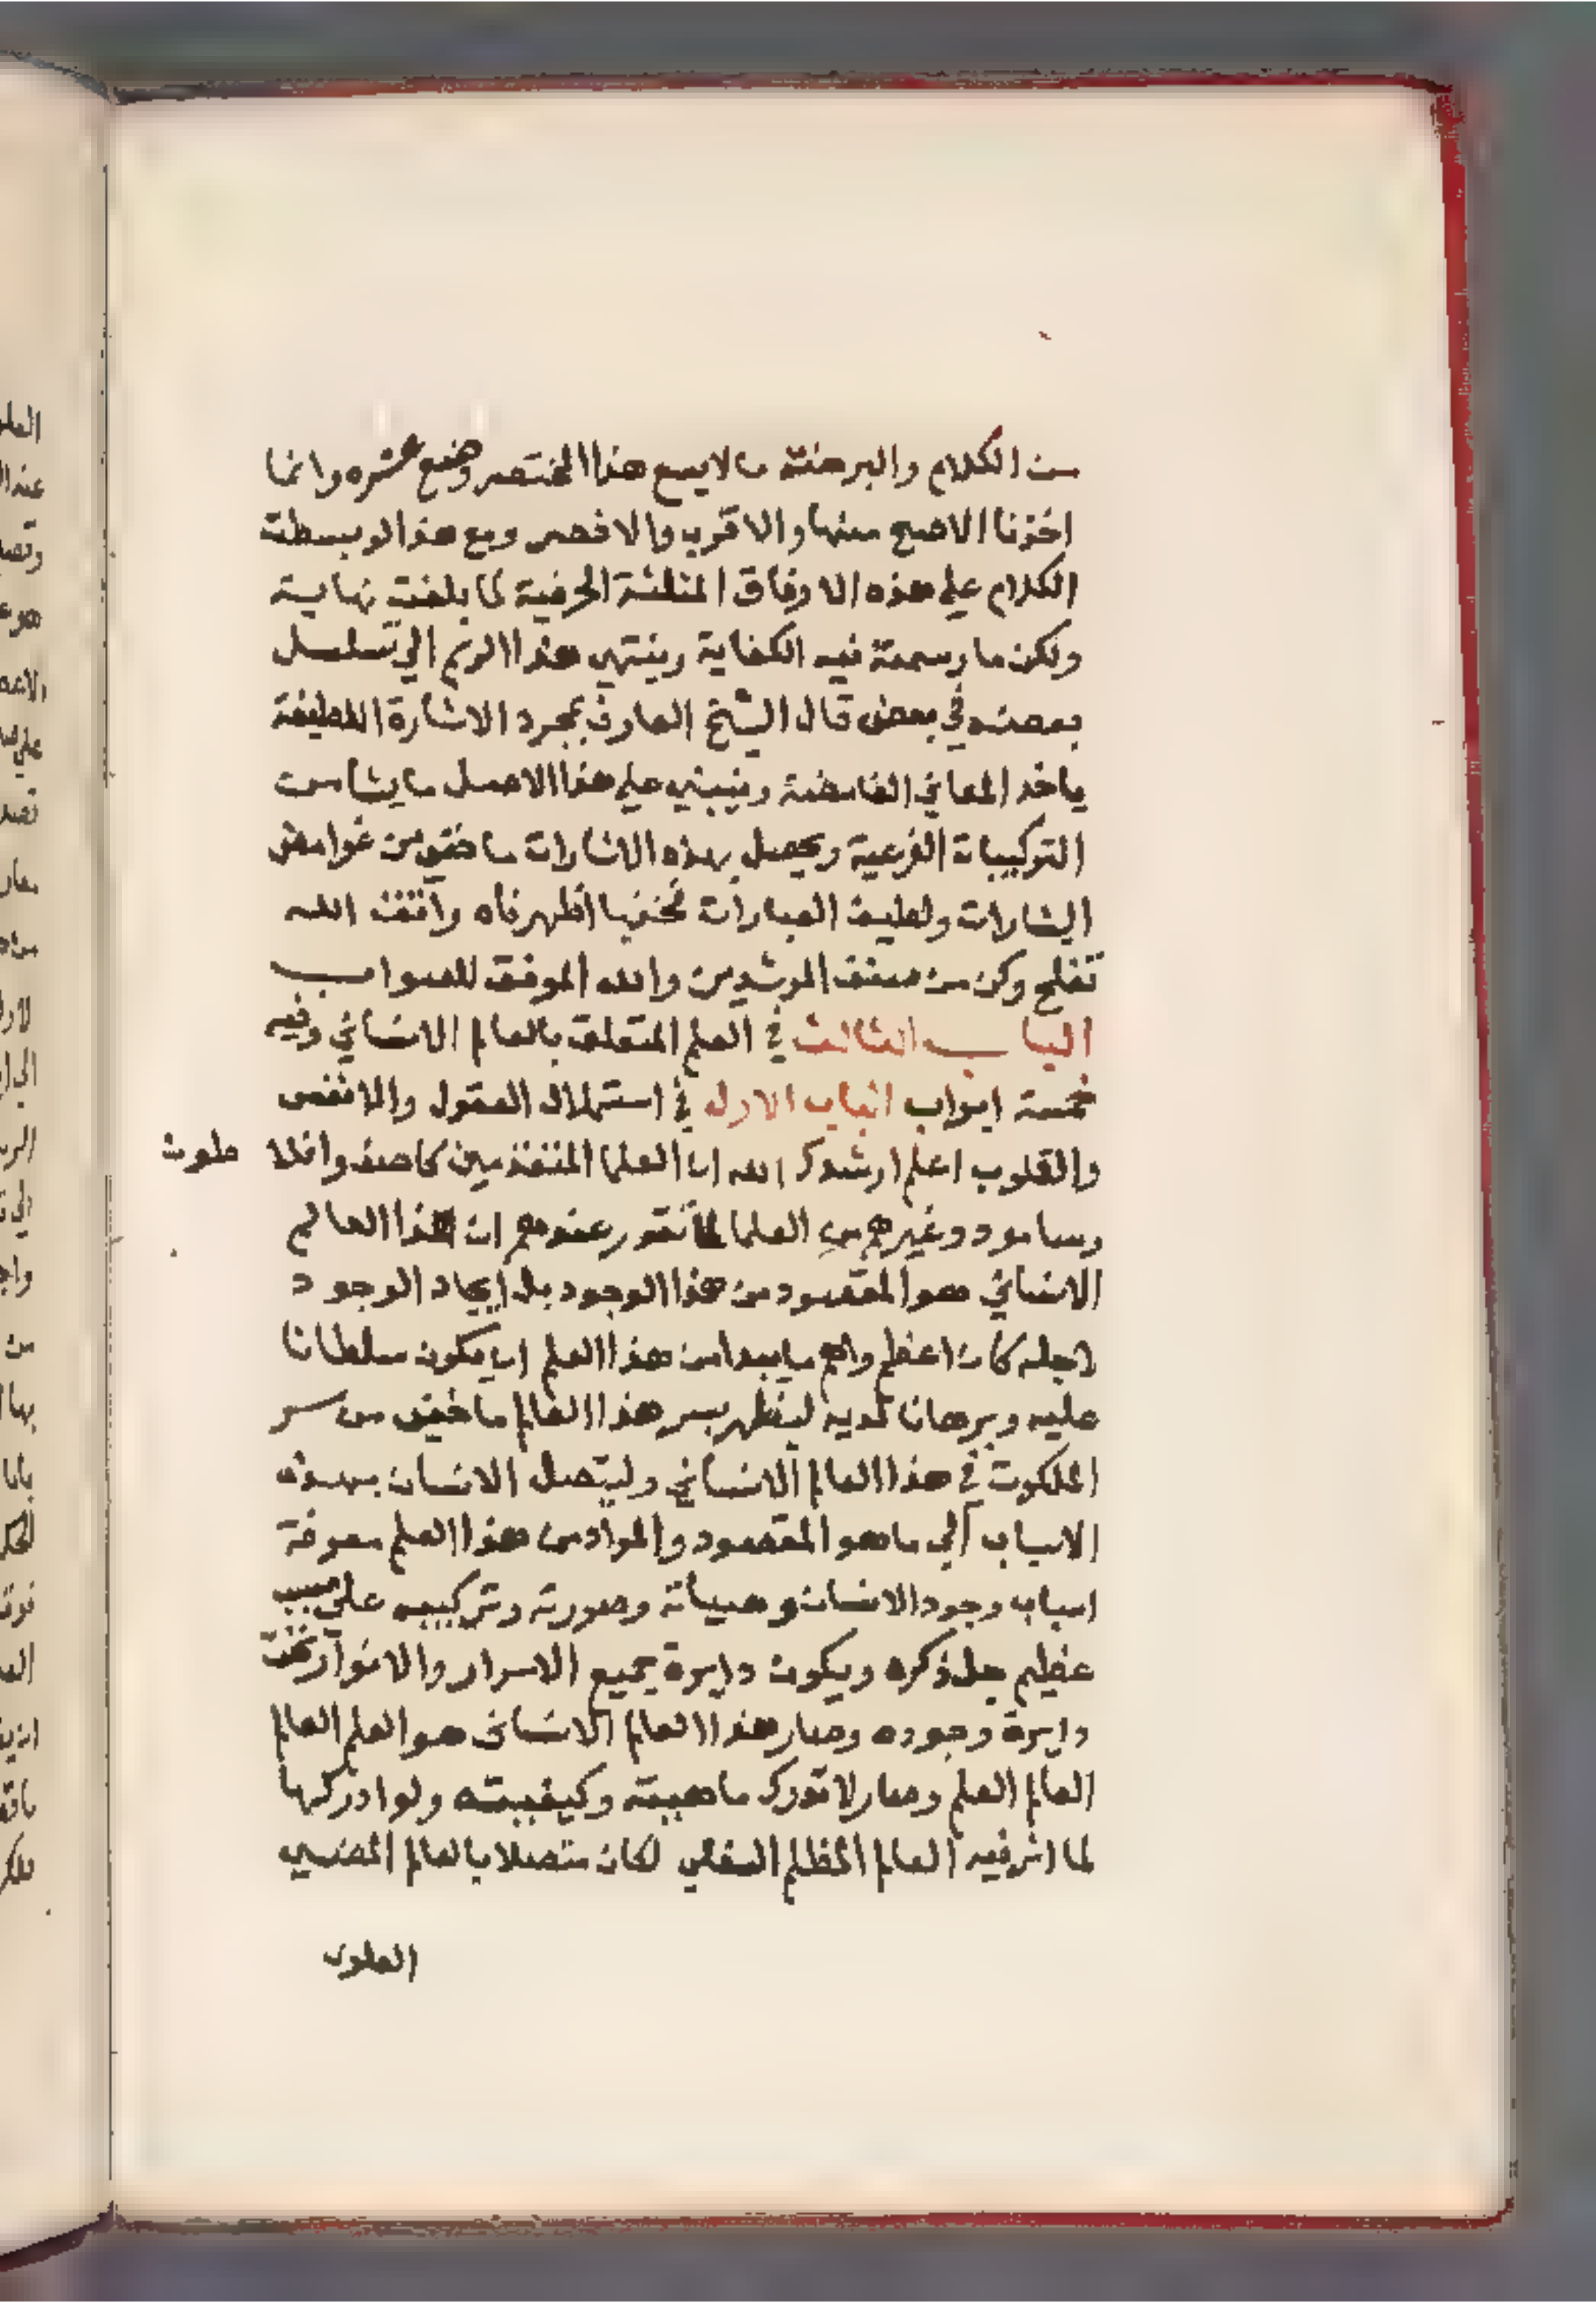 من الكلام والبرهنة ما لا يسع هذا المختصر وضع عشره وانما
اخذنا الاصح منها والاقرب والاخصر ومع هذا لو بسطت
الكلام علي هذه الاوفاق المثلثة الحرفية لما بلغت نهاية
ولكن ما رسمته فيه الكفاية وينتهي هذا الرسم الي تسلسل
بعضه في بعض قال الشيخ العارف بمجرد الاشارة اللطيفة
ياخذ المعاني الغامضة وينبني علي هذا الاصل ما يشا من
التركيبات الفرعية ويحصل بهذه الاشارات ما خفي من غوامض
الشارات ولطيف العبارات اظهرناه واتق الله
تفلح وكن من صنف المرشدين والله الموفق للصواب
الباب الثالث في العلم المتعلق بالعالم الانساني وفيه
خمسة ابواب الباب الاول في استهلال العقول والانفس
والقلوب اعلم ارشدك الله ان العلما المتقدمين كاصف وافلا طون
وسامود وغيرهم من العلما لما تقرر عندهم ان هذا العالم
الانساني هو المقصود من هذا الوجود بل ايجاد الوجود
لاجله كان اعظم واهم ما يبدا من هذا العلم ان يكون سلطانا
عليه وبرهان لديه ليظهر بسر هذا العالم ما خفي من سر
الملكوت في هذا العالم الانساني وليتصل الانسان بهذه
الاسباب الي ما هو المقصود والمراد من هذا العلم معرفة
اسباب وجود الانسان وهيياته وصورته وتركيبه علي سبب
عظيم جل ذكره ويكون دايرة جميع الاسرار والانوار تحت
دايرة وجوده وصار هذا العالم الانساني هو العلم العالم
العالم العلم وصار لا تدرك ماهيته وكيفيته ولو ادركها
لما اشرفيه العالم المظلم السفلي لكان متصلا بالعالم المضيي
العلوي